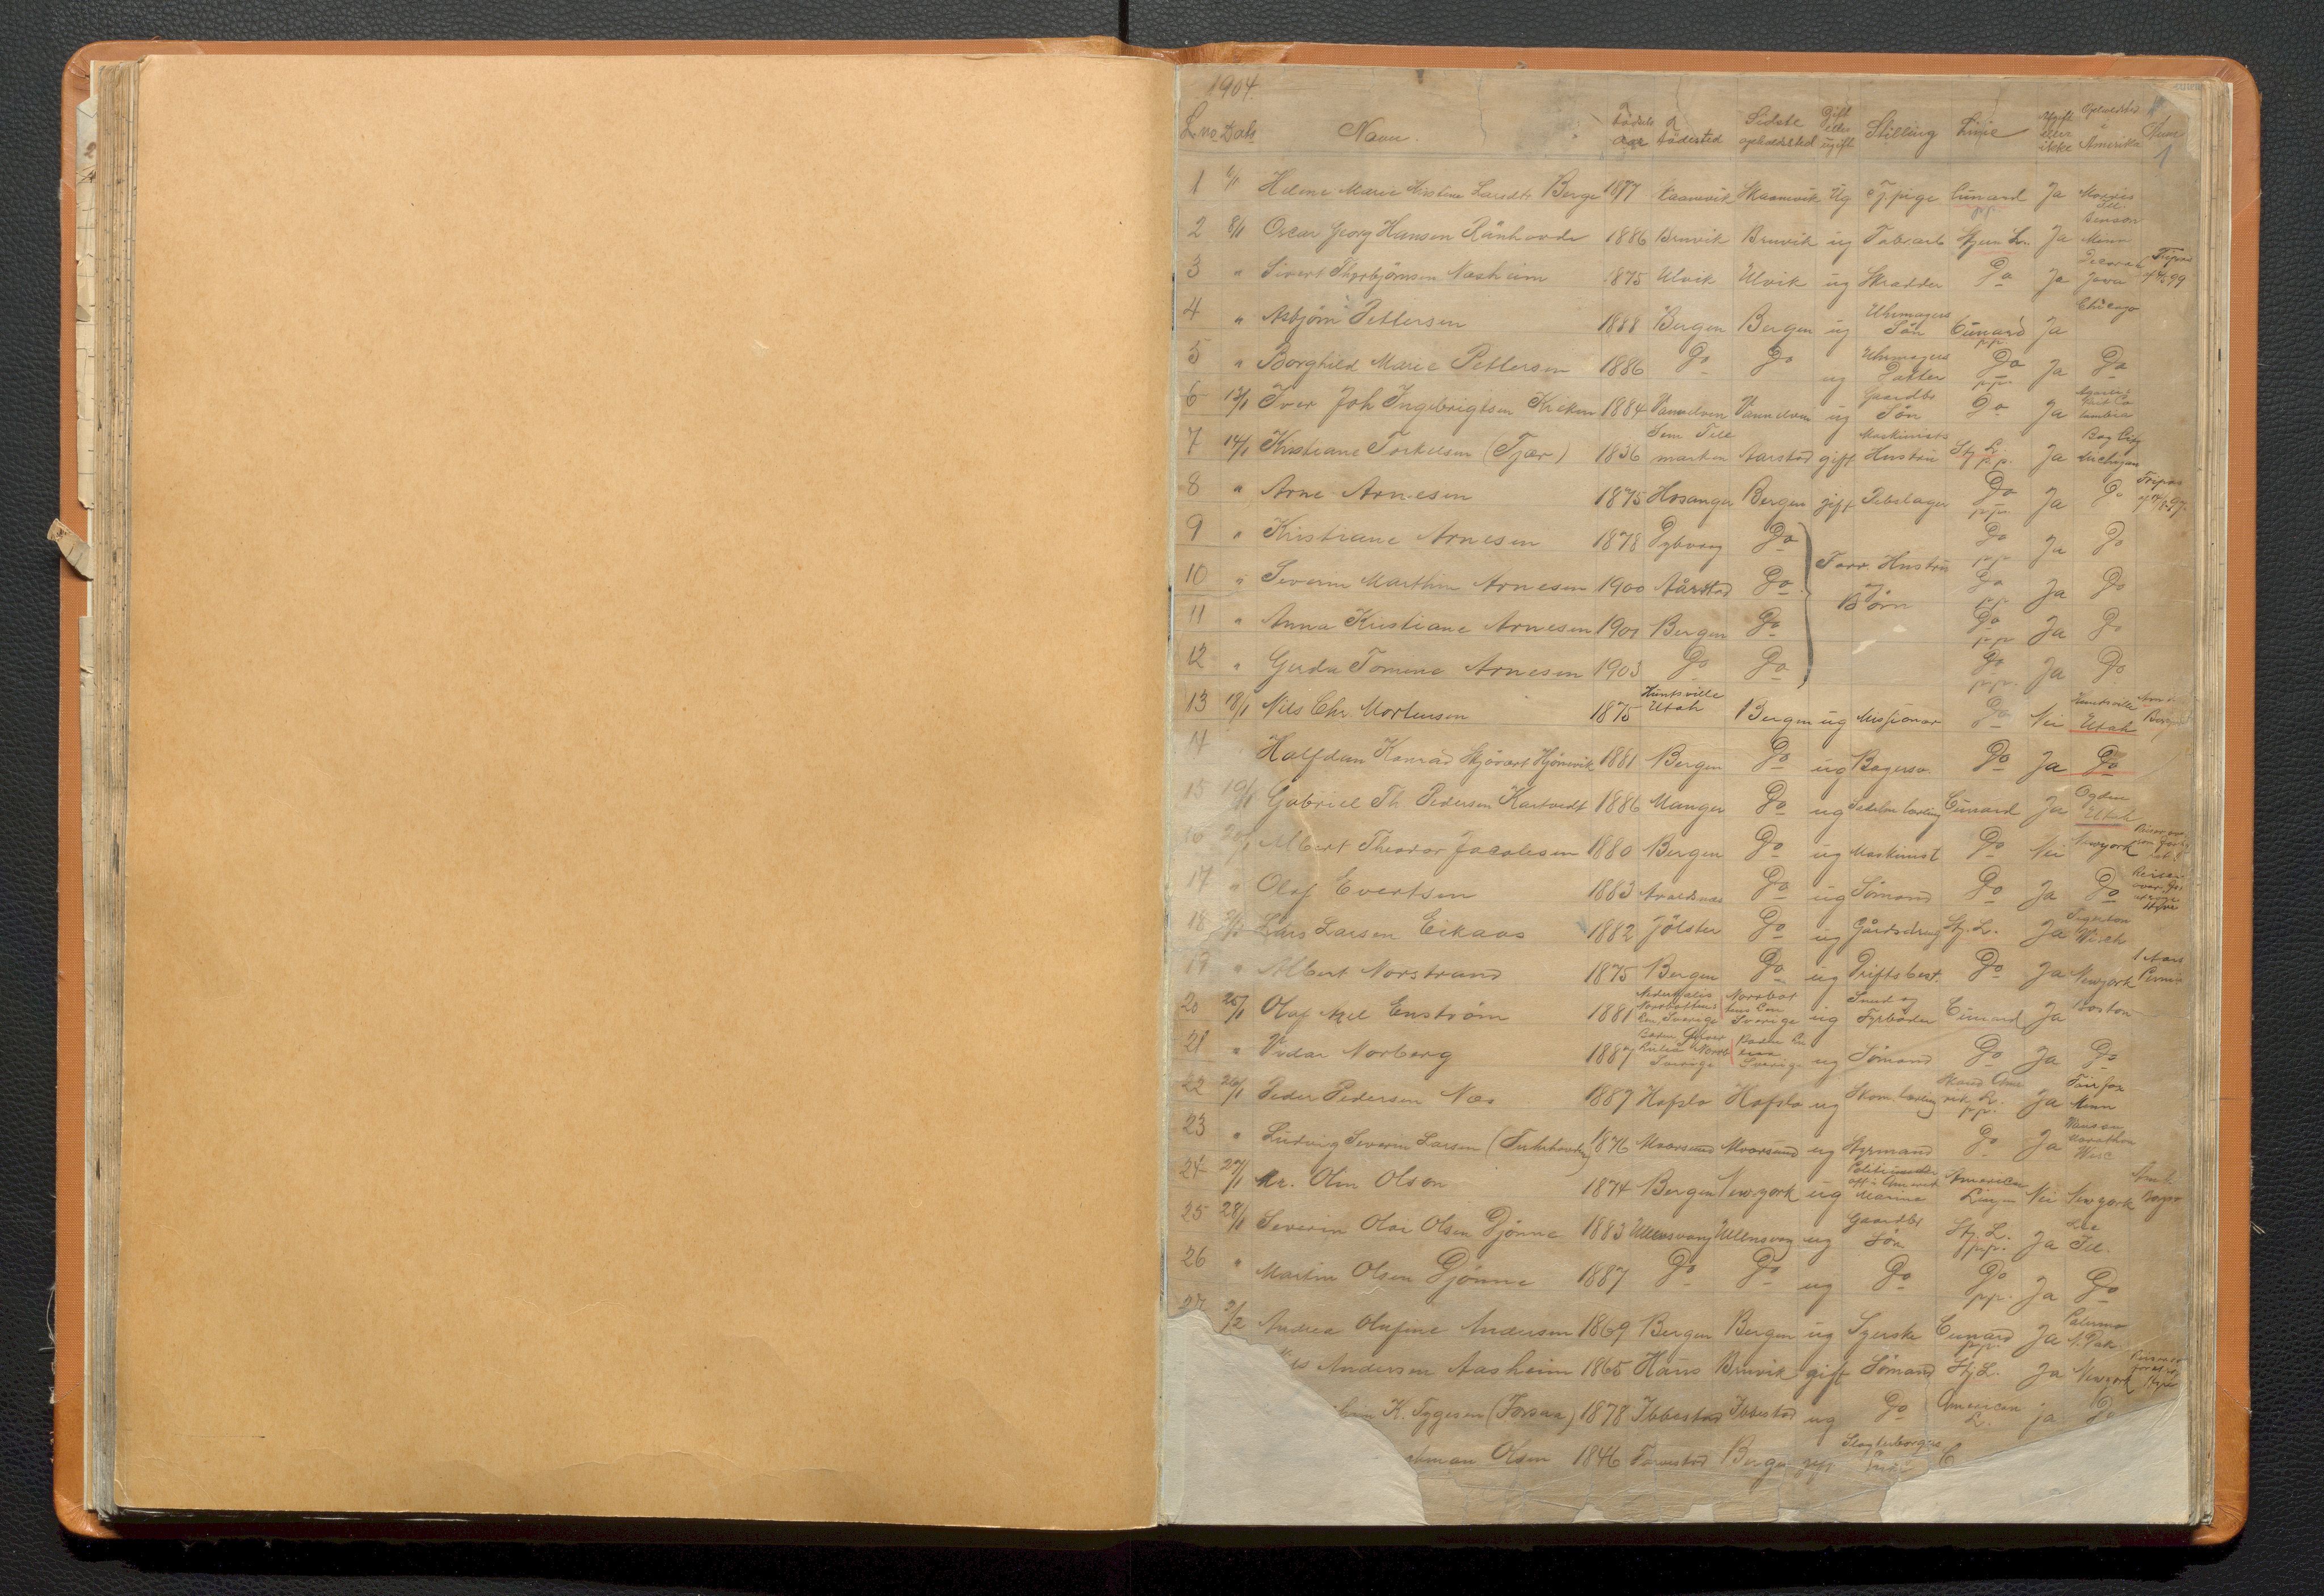 1904.
L.no Dato Navn. Fødsels aar og fødested Sidste opholdssted Gift eller ugift Stilling Linie Afgift eller ikke Opholdsted i Amerika Anm
1
1 Helene Marie Kristine Larsdtr Berge 1877 Skaanevik Skaanevik Ug Tj.pige Cunard pp. Ja Morris Ill.
2 8/1 Oscar Georg Hansen Rånhovde 1886 Bruvik Bruvik ug Fabr.arb Stjern Ln. Ja Benson Minn
3 " Sivert Thorbjörnsen Næsheim 1875 Ulvik Ulvik ug Skrædder Do Ja Decorah Jova Fripas
4 " Asbjörn Pettersen 1888 Bergen Bergen ug Uhrmagers Sön Cunard pp. Ja Chicago
5 " Borghild Marie Pettersen 1886 Do Do ug Uhrmagers Datter Do pp. Ja Do
6 13/1 Iver Joh Ingebrigtsen 1884 Vannelven Vannelven ug Gaardbr Sön Do Ja
7 14/1 Kristiane Torkelsen (Tjær) 1836 Sem Tele marken Aarstad gift Maskinists Hustru Stj L. p.p. Ja Bay City Michigan
8 " Arne Arnesen 1875 Hosanger Bergen gift Rebslager Do pp. Ja Do Fripas
9 " Kristiane Arnesen 1878 Dybvaag Do Do pp. Ja Do
Forr. Hustru og Börn
10 " Severin Marthin Arnesen 1900 Aarstad Do Do pp. Ja Do
11 " Anna Kristiane Arnesen 1901 Bergen Do Do pp. Ja Do
12 " Gerda Tomine Arnesen 1903 Do Do Do pp. Ja Do
13 18/1 Nils Chr. Mortensen 1875 Huntsville Utah Bergen ug Missionær Do Nei Huntsville Utah Am. Borger
14 Halfdan Konrad Hjönnevik 1881 Bergen Do ug Bagersv. Do Ja Do
15 19/1 Gabriel Th. Pedersen Kartvedt 1886 Manger Do ug Cunard Ja Ogden Utah
16 20/1 Albert Theodor Jacobsen 1880 Bergen Do ug Maskinist Do Nei Newyork
17 " Olaf Evertsen 1883 Avaldsnæs Do ug Sömand Do Ja Do
18 Lars Larsen Eikaas 1882 Jölster Do ug Gårdsdreng Stj. L. Ja Wisc
19 " Albert Norstrand 1875 Bergen Do ug Driftsbest. Do Ja Newyork 1 Aars Permis
20 25/1 Olaf Axel Enström 1881 Nederkalix Norrbottens Len, Sverige Norrbot tens Len Sverige ug Smed og Fyrböder Cunard Ja Boston
21 " Vidar Norberg 1887 Sverige Sverige ug Sömand Do Ja Do
22 26/1 Peder Pedersen Næs 1887 Hafslo Hafslo ug Skom. lærling Skand Ame rik. L. pp. Ja Fairfax Minn
23 " Ludvig Severin Larsen 1876 Moorsund Moorsund ug Styrmand Do Ja Marathon Wisc
24 27/1 Mr. Olin Olson 1874 Bergen Newyork ug Marine American Linjen Nei Newyork Amk Borger
25 28/1 Severin Olai Olsen Djönne 1883 Ullensvang Ullensvang ug Gaardbr Sön Stj L. pp. Ja Lee Ill.
26 " Martin Olsen Djönne 1887 Do Do ug Do Do pp. Ja Do
27 2/2 Andrea Olufine Andersen 1869 Bergen Bergen ug Syerske Cunard pp. Ja Palermo N. Dak.
Andersen Aasheim 1865 Haus Bruvik gift Sömand Stj L. Ja Newyork
K. Tygesen (Forsaa) 1878 Ibbestad Ibbestad ug Do American L. ja Do
Olsen 1846 Bergen gift